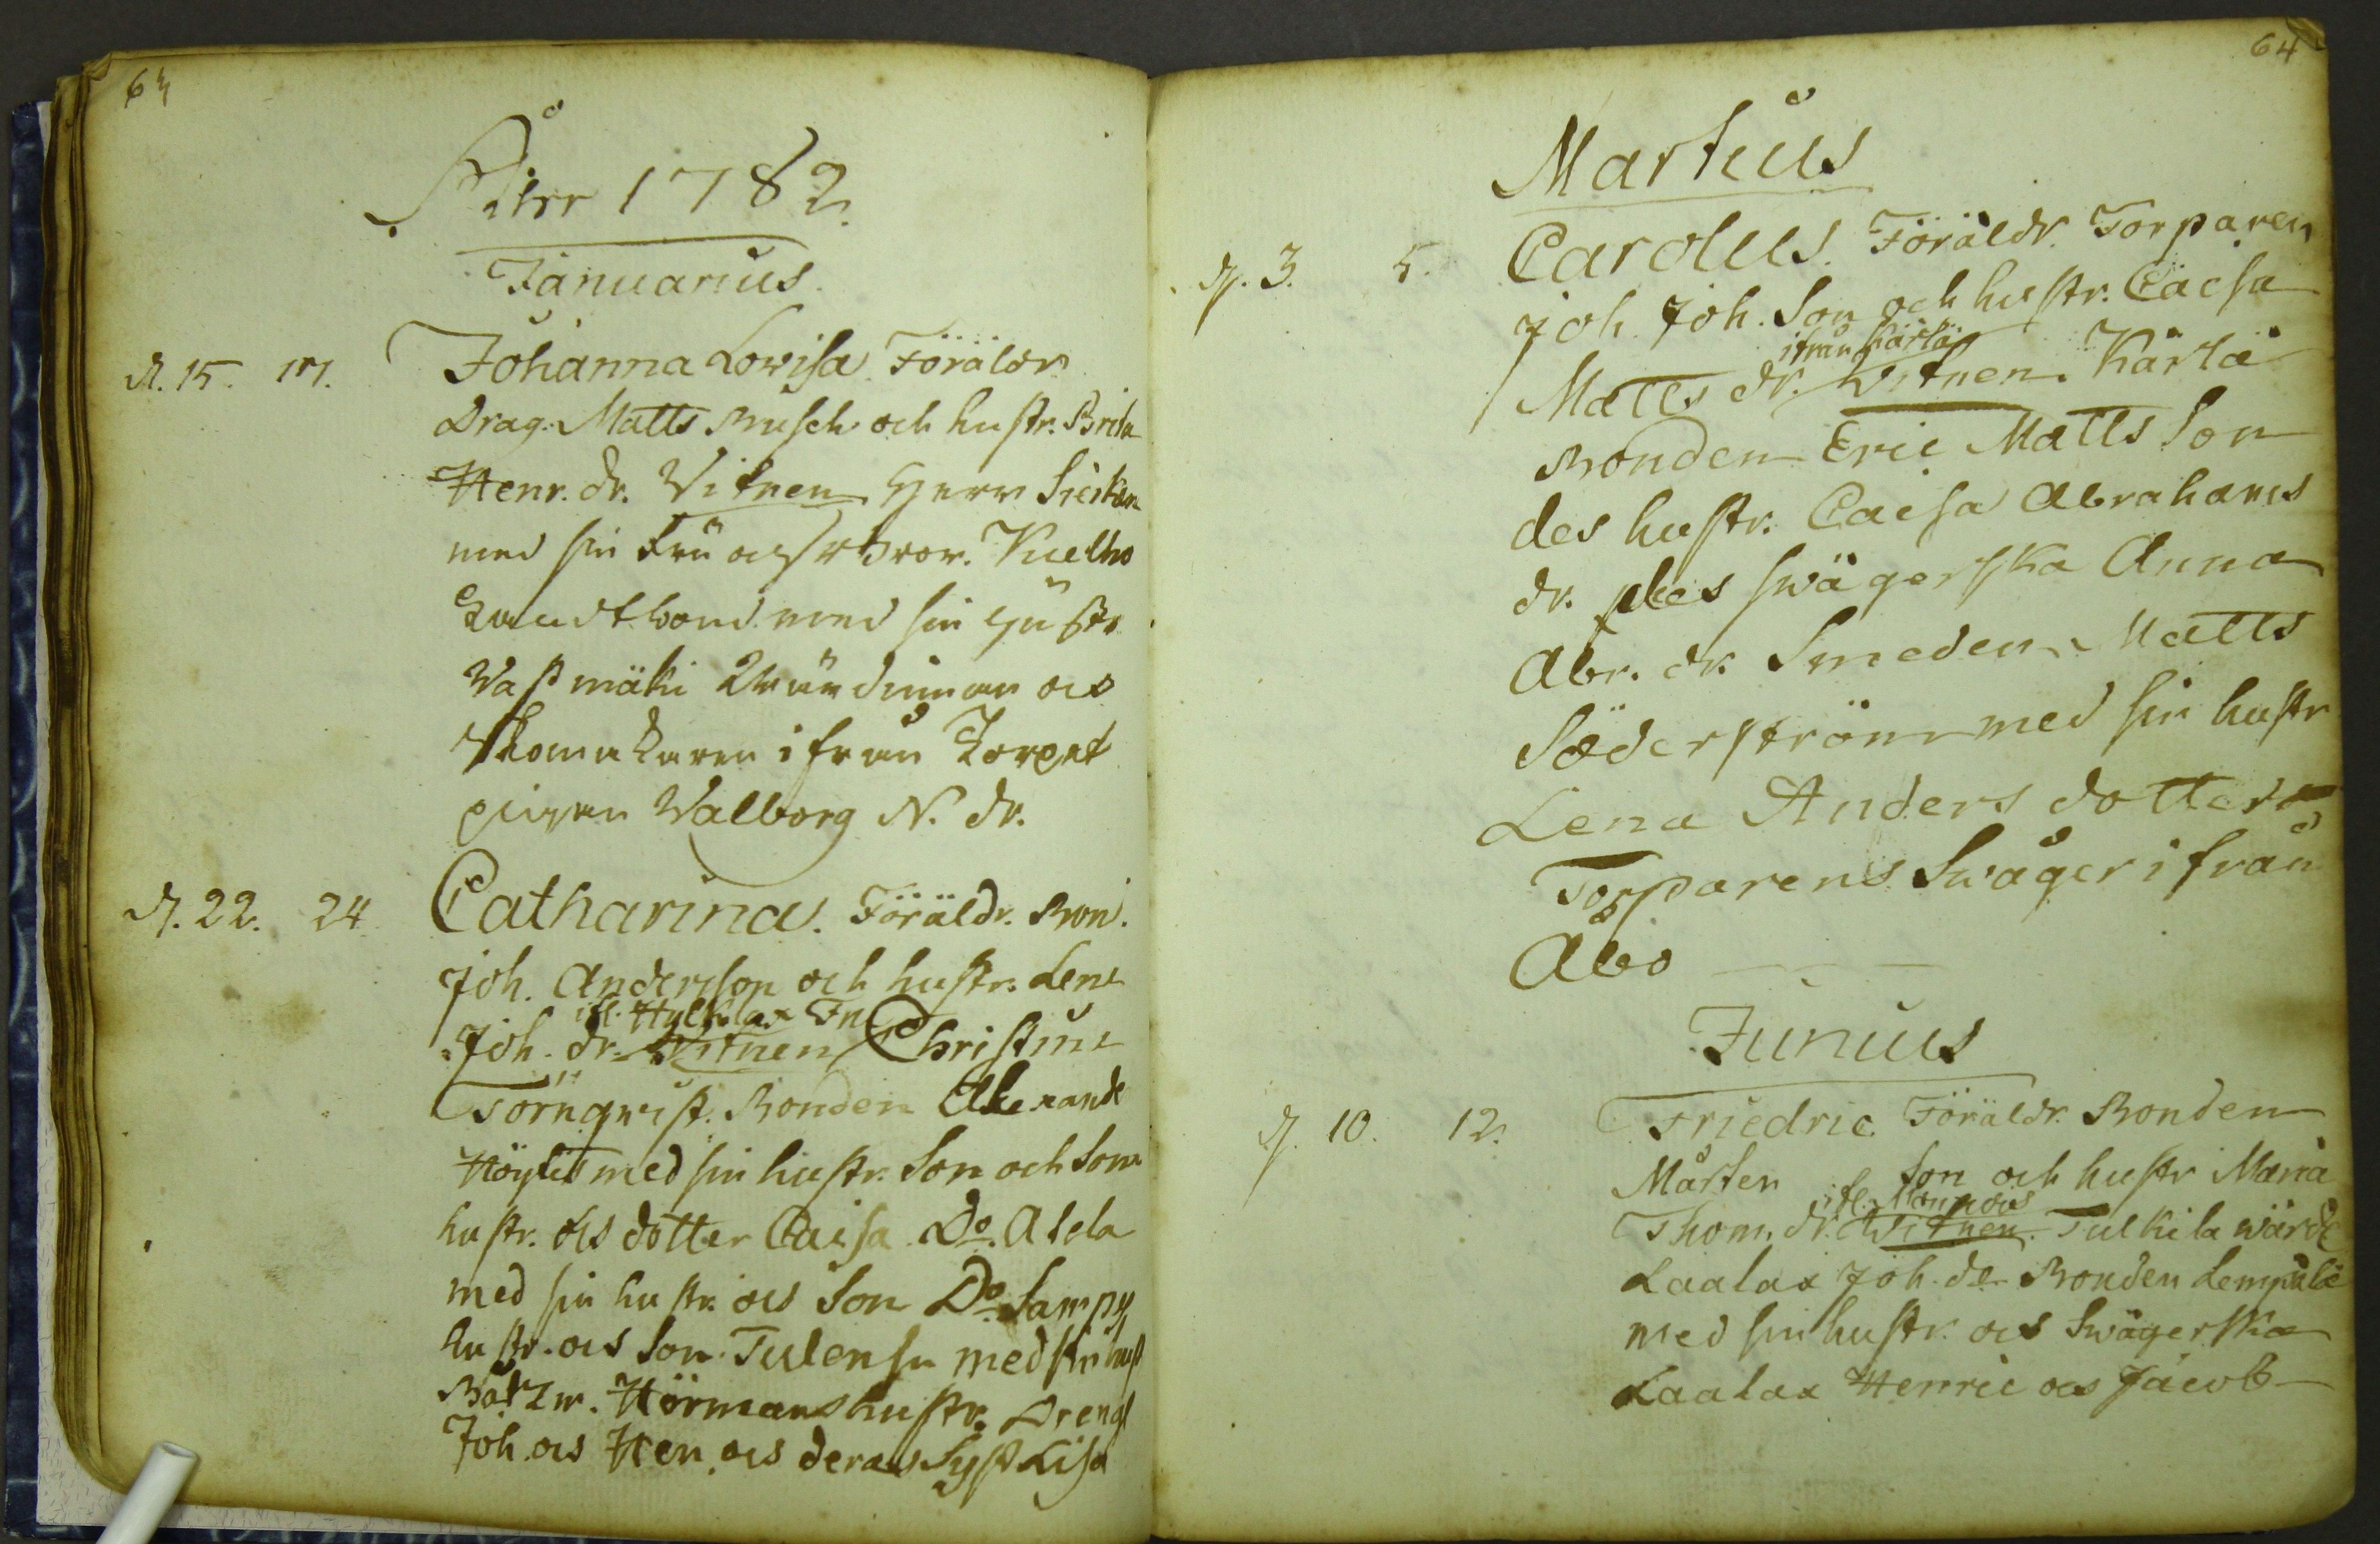 63
Åhr 1782.
Januarius.
d. 15. 17. Johanna Lovisa. Föräldr
Drag. Matts Busch och hustr. Brita
Henr. dr. Vitnen Herr
med sin Fru
med sin hustr
Vastmäki Wärdinnan ock
Skomakaren ifrån Torpet
pigan Walborg N. dr.
d. 22. 24 Catharina. Föräldr. Bon.
Joh. Andersson och hustr. Lena
ifl. Hylkilax
Joh. dr. Witnen Christina
Törnqvist. Bonden Alexand
med sin hustr. Son och Sone
hustr. ock dotter Caisa Do. Atela
med sin hustr. ock Son Do. Sampy
hustr. ock Son. med sin hust
Båtzm. Hörmans hustr. Dreng
Joh. ock Hen. ock deras Syst Lisa
64
Martius
d. 3. 5. Carolus. Föräldr. Torparen
Joh. Joh. Son och hustr. Caisa
ifrån Kärtä
Matts dr. Witnen. Kärtä
Bonden Eric Matts Son
des hustr. Caisa Abrahams
dr. des swägerska Anna
Abr. dr. Smeden Matts
Söderström med sin hustr
Lena Anders dotter
Torparens Swåger ifrån
Åbo
Junius
d. 10. 12. Friedric. Föräldr. Bonden
Mårten Son och hustr Maria
ifl.
Thom. dr. Witnen. Tulkila wärd
Laalax Joh. dr Bonden Lempälä
med sin hustr. ock Swägerska
Laalax Henric ock Jacob